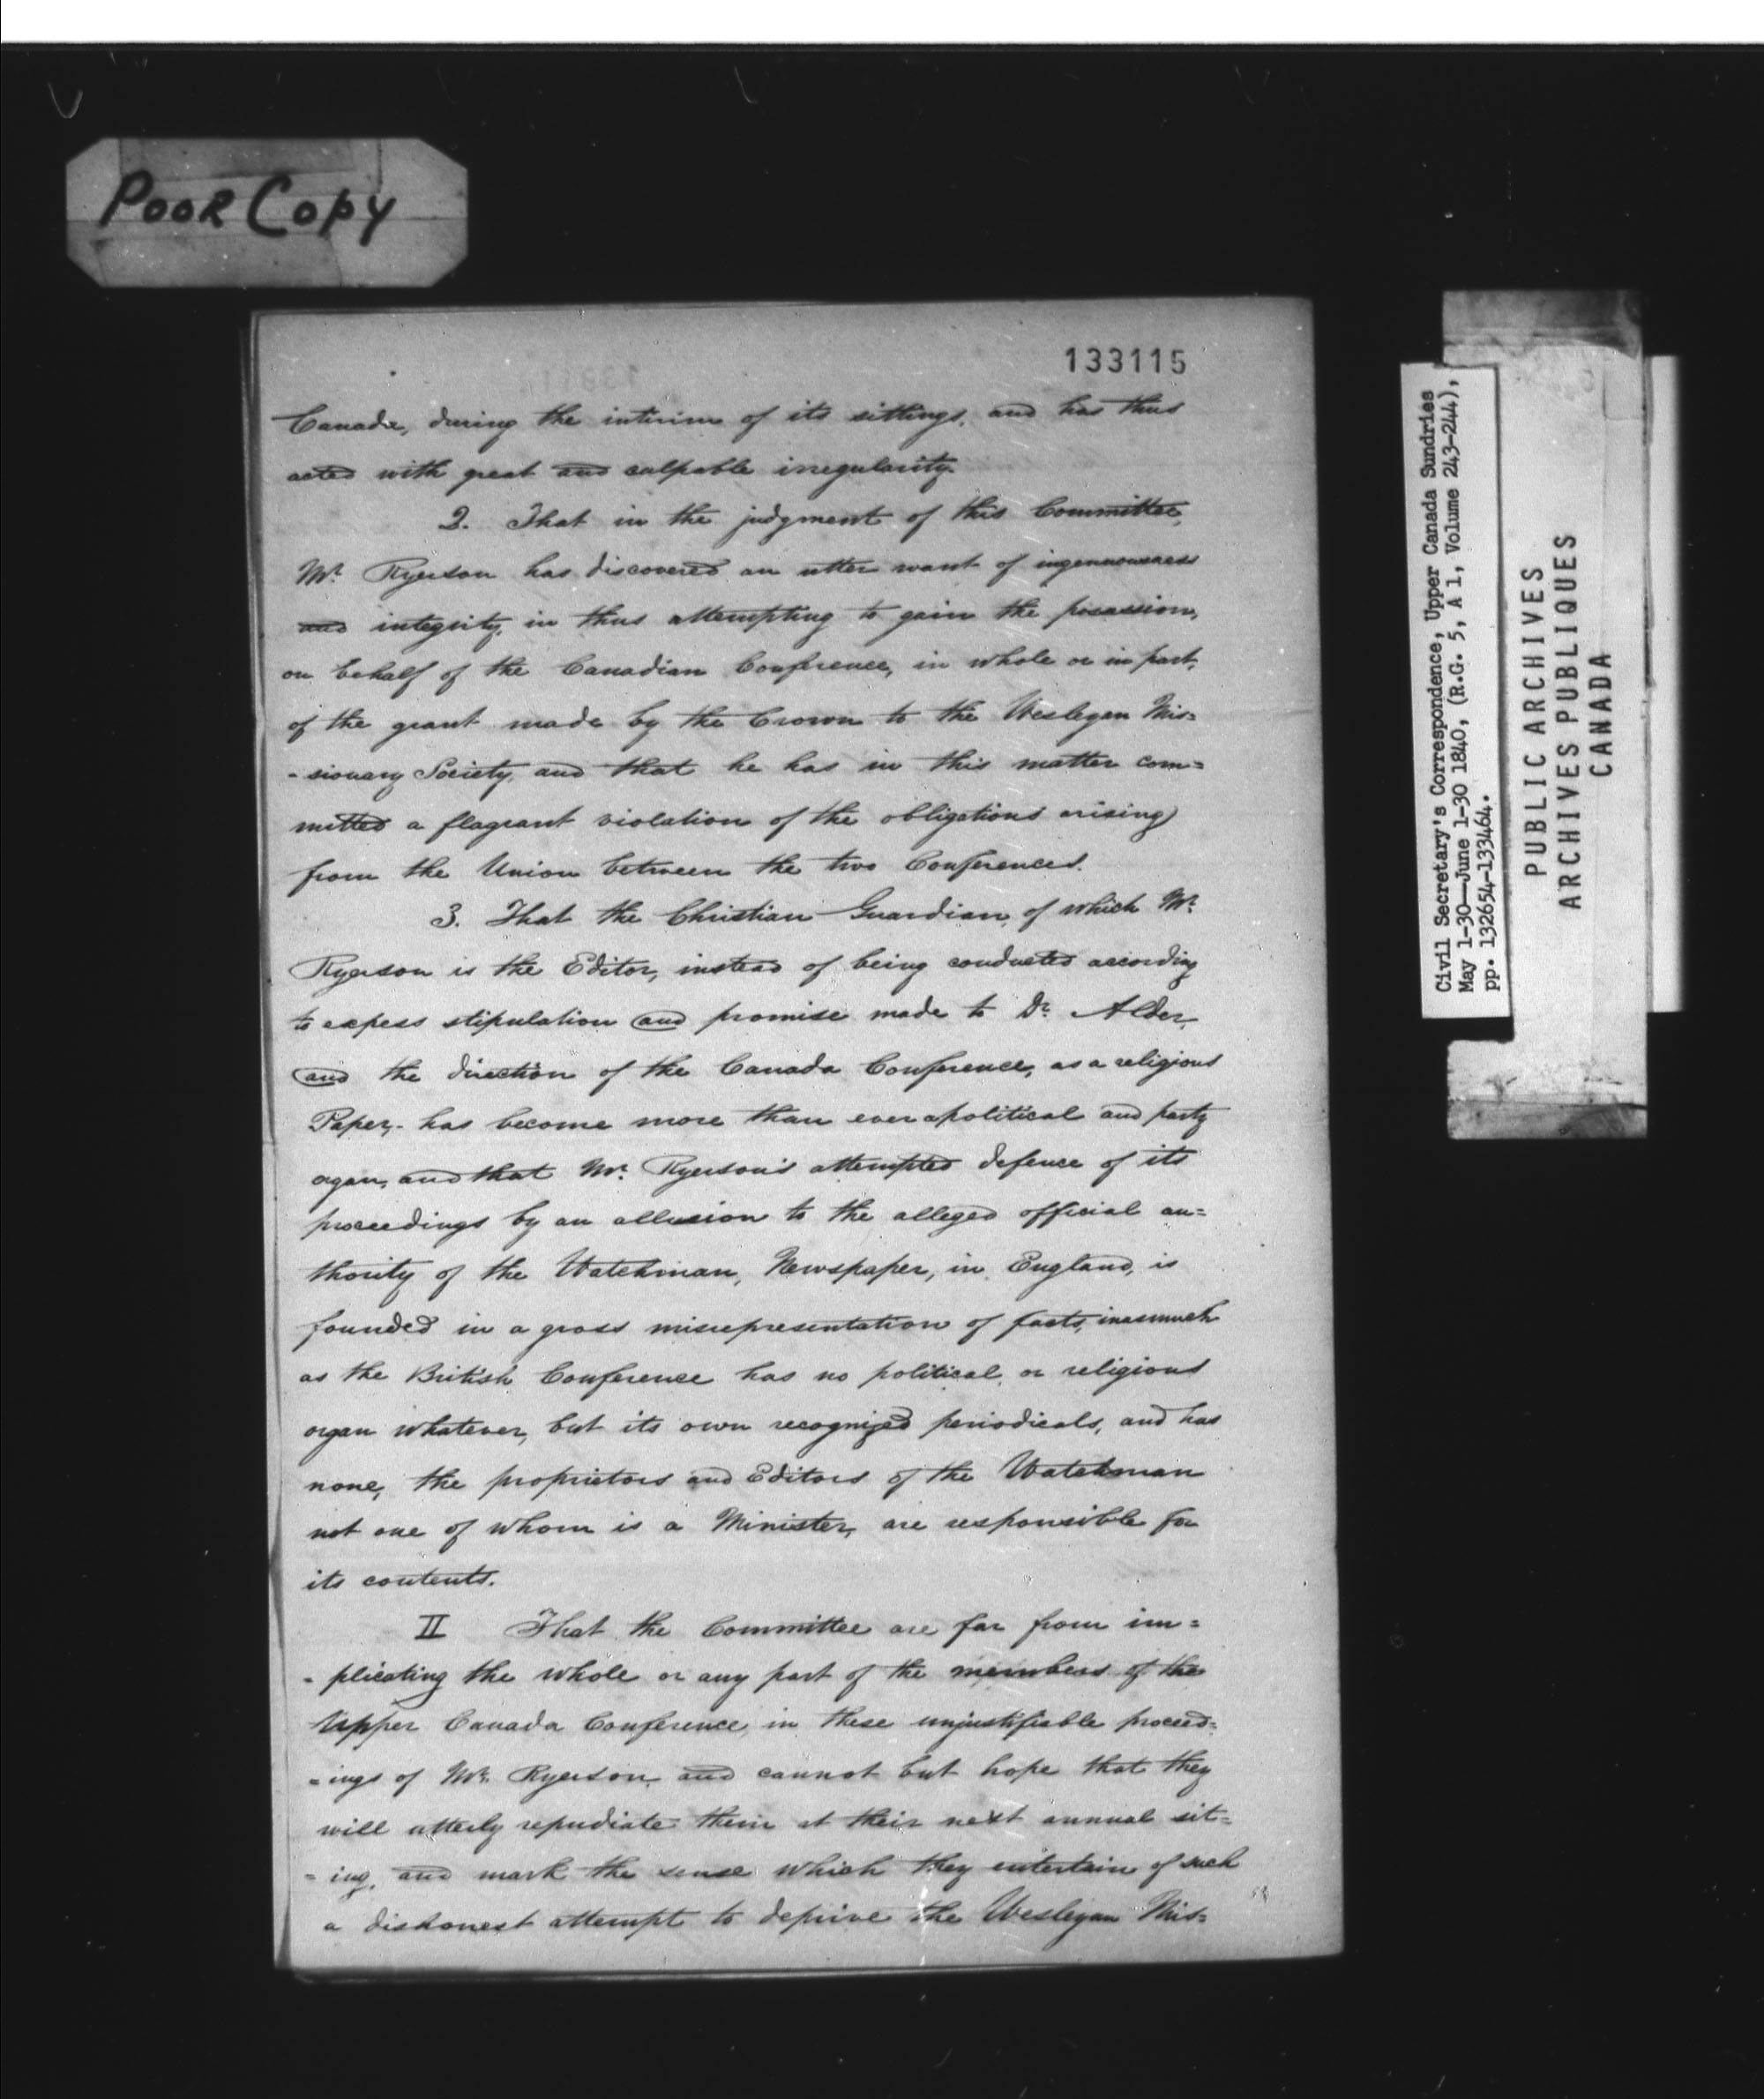 POOR COPY
133115
Canada, during the interim of its sittings, and has thus
acted with great and culpable irregularity.
2. That in the judgment of this Committee,
Mr. Ryerson has discovered an utter want of ingenuousness
and integrity, in thus attempting to gain the possession,
on behalf of the Canadian Conference, in whole or in part,
of the grant made by the Crown to the Wesleyan Mis=
-sionary Society, and that he has in this matter com=
mitted a flagrant violation of the obligations arising
from the Union between the two Conferences.
3. That the Christian Guardian, of which Mr.
Ryerson is the Editor, instead of being conducted according
to expess stipulation and promise made to Dr. Alder,
and the direction of the Canada Conference, as a religious
Paper,- has become more than ever a political and party
ogan, and that Mr. Ryerson's attempted defence of its
proceedings by an allusion to the alleged official au=
thority of the Watchman, Newspaper, in England, is
founded in a gross misrepresentation of facts, inasmuch
as the British Conference has no political, or religious
organ whatever, but its own recognized periodicals, and has
none, the proprietors and Editors of the Watchman
not one of whom is a Minister, are responsible for
its contents.
II That the Committee are far from im=
- plicating the whole or any part of the members of the
Upper Canada Conference, in these unjustifiable proceed=
=ings of Mr. Ryerson, and cannot but hope that they
will utterly repudiate them at their next annual sit=
= ing, and mark the sense which they entertain of such
a dishonest attempt to deprive the Wesleyan Mis=
Civil Secretary's Correspondence, Upper Canada Sundries
May 1-30—June 1-30 1840, (R.G. 5, A 1, Volume 243-244),
pp. 132654-133464.
PUBLIC ARCHIVES
ARCHIVES PUBLIQUES
CANADA